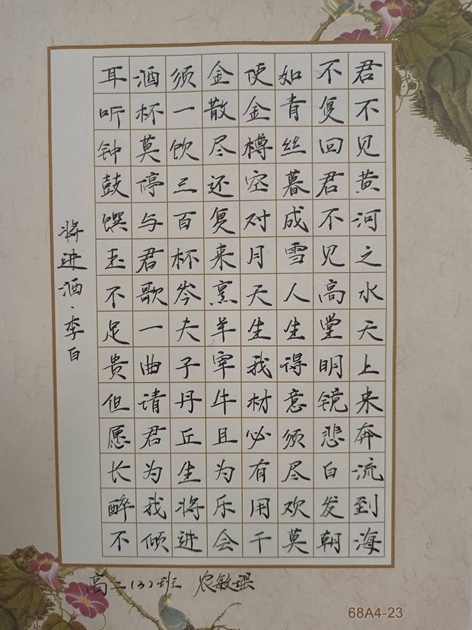 君不见黄河之水天上来奔流到海
不复回君不见高堂明镜悲白发朝
如青丝暮成雪人生得意须尽欢莫
使金樽空对月天生我材必有用千
金散尽还复来烹羊宰牛且为乐会
须一饮三百杯岑夫子丹丘生将进
酒杯莫停与君歌一曲请君为我倾
耳听钟鼓馔玉不足贵但愿长醉不
将进酒·李白
高二(3)班
68A4-23